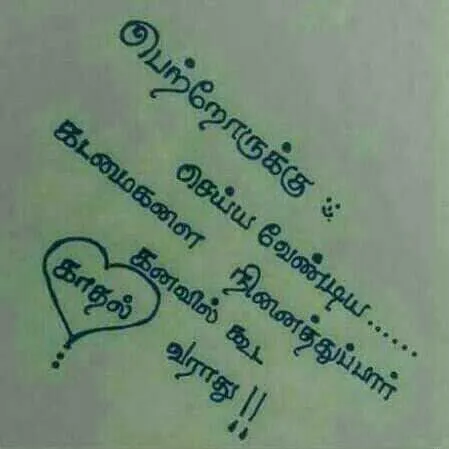 பெற்றோருக்கு
செய்ய வேண்டிய......
கடமைகளை நினைத்துப்பார்
காதல் கனவில் கூட
வராது !!